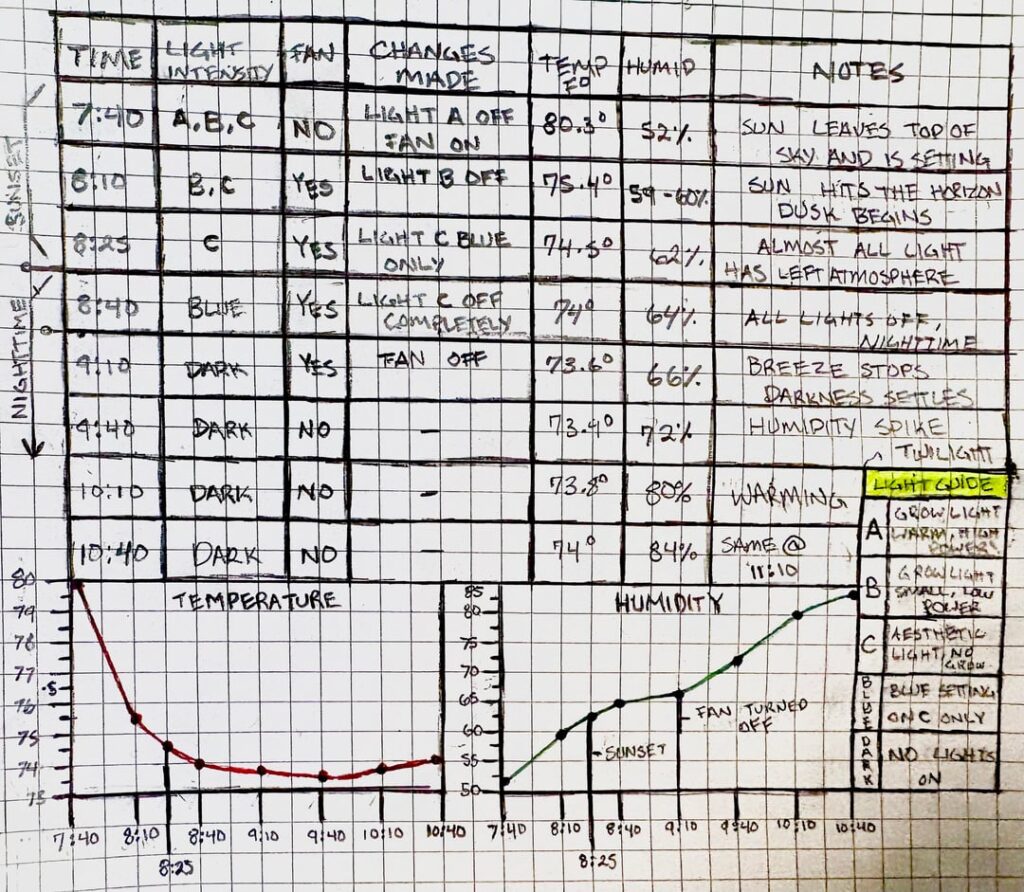 TIME LIGHT INTENSITY FAN CHANGES MADE TEMP F° HUMID NOTES
7:40 A, B, C NO LIGHT A OFF FAN ON 80.3° 52% SUN LEAVES TOP OF SKY AND IS SETTING
8:10 B, C YES LIGHT B OFF 75.4° 59-60% SUN HITS THE HORIZON DUSK BEGINS
8:25 C YES LIGHT C BLUE ONLY 74.5° 62% ALMOST ALL LIGHT HAS LEFT ATMOSPHERE
8:40 BLUE YES LIGHT C OFF COMPLETELY 74° 64% ALL LIGHTS OFF, NIGHTTIME
9:10 DARK YES FAN OFF 73.6° 66% BREEZE STOPS DARKNESS SETTLES
9:40 DARK NO - 73.4° 72% HUMIDITY SPIKE TWILIGHT
10:10 DARK NO - 73.8° 80% WARMING
10:40 DARK NO - 74° 84% SAME @ 11:10
SUNSET
NIGHTTIME
LIGHT GUIDE
A GROW LIGHT WARM, HIGH POWER
B GROW LIGHT SMALL, LOW POWER
C AESTHETIC LIGHT, NO GROW
BLUE BLUE SETTING ON C ONLY
DARK NO LIGHTS ON
TEMPERATURE
80
79
78
77
.5
76
75
74
73
7:40 8:10 8:40 9:10 9:40 10:10 10:40
8:25
HUMIDITY
85
80
75
70
65
60
55
50
FAN TURNED
OFF
SUNSET
7:40 8:10 8:40 9:10 9:40 10:10 10:40
8:25